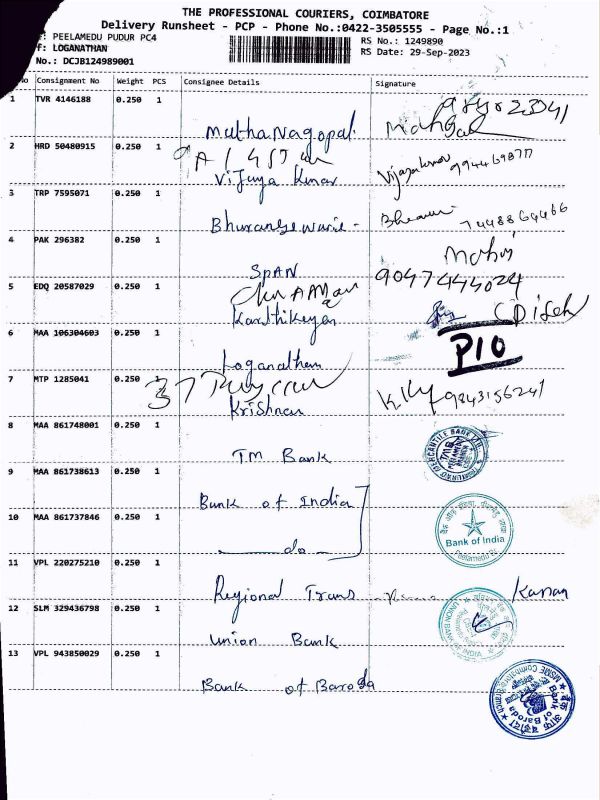 THE PROFESSIONAL COURIERS, COIMBATORE
Delivery Runsheet - PCP - Phone No.:0422-3505555 - Page No.:1
: PEELAMEDU PUDUR PC4
RS No.: 1249890
f: LOGANATHAN
RS Date: 29-Sep-2023
No.: DCJB124989001
No Consignment No Weight PCS Consignee Details Signature
1 TVR 4146188 0.250 1
MuthaNagopal.
2 HRD 50480915 0.250 1
Vijaya Kumar 9944698777
3 TRP 7595071 0.250 1
Bhuvaneswarie - 7448864466
4 PAK 296382 0.250 1
SPAN 9047444024
5 EDQ 20587029 0.250 1
Karthikeyan
6 MAA 106304603 0.250 1
P10
Loganathan
7 MTP 1285041 0.250 1
Krishnan 9843156241
8 MAA 861748001 0.250 1
TM Bank
9 MAA 861738613 0.250 1
Bank of India
10 MAA 861737846 0.250 1
Bank of India
do
Peelamedu
11 VPL 220275210 0.250 1
Regional Trans Kannan
12 SLM 329436798 0.250 1
UNION BANK OF INDIA
Union Bank
13 VPL 943850029 0.250 1
Bank of Baroda
Bank of Baroda